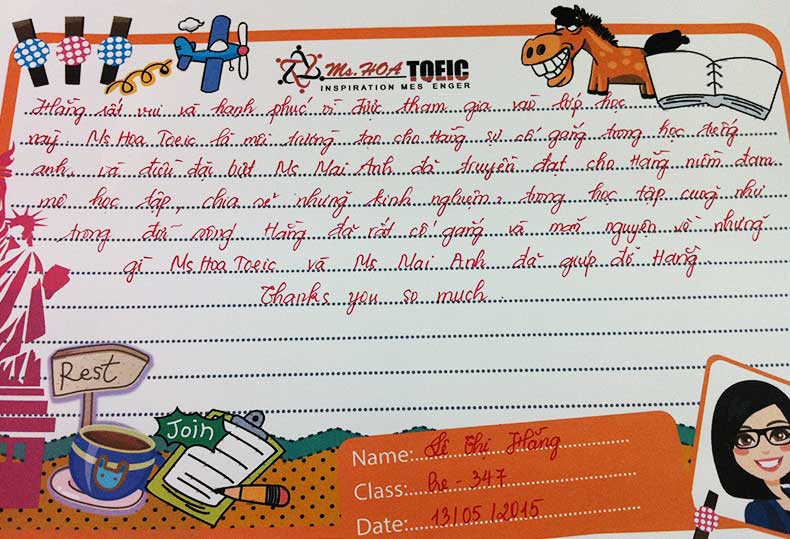 Ms.HOA TOEIC
INSPIRATION MES ENGER
Hằng rất vui và hạnh phúc vì được tham gia vào lớp học
này. Ms Hoa Toeic là môi trường tạo cho Hằng sự cố gắng trong học tiếng
anh, và điều đặc biệt Ms Mai Anh đã truyền đạt cho Hằng niềm đam
mê học tập, chia sẻ những kinh nghiệm, trong học tập cũng như
trong đời sống Hằng đã rất cố gắng và mãn nguyện về những
gì Ms Hoa Toeic và Ms Mai Anh đã giúp đỡ Hằng
Thanks you so much.
Rest
Join
Name: Lê Thị Hằng
Class: he - 347
Date: 13/05/2015